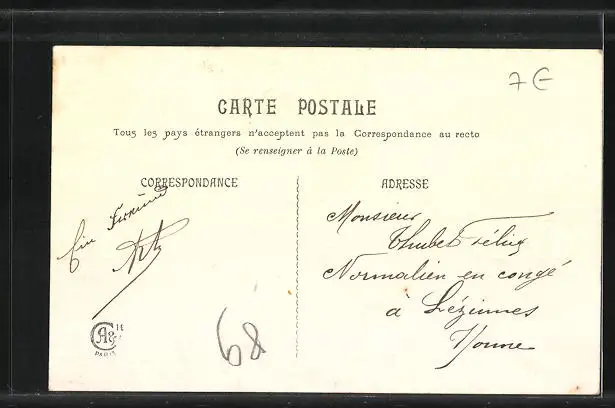 7 €
CARTE POSTALE
Tous les pays étrangers n'acceptent pas la Correspondance au recto
(Se renseigner à la Poste)
CORRESPONDANCE
ADRESSE
Ein Freund
Monsieur
Thubet Félix
Normalien en congé
à Lézinnes
Yonne
68
PARIS